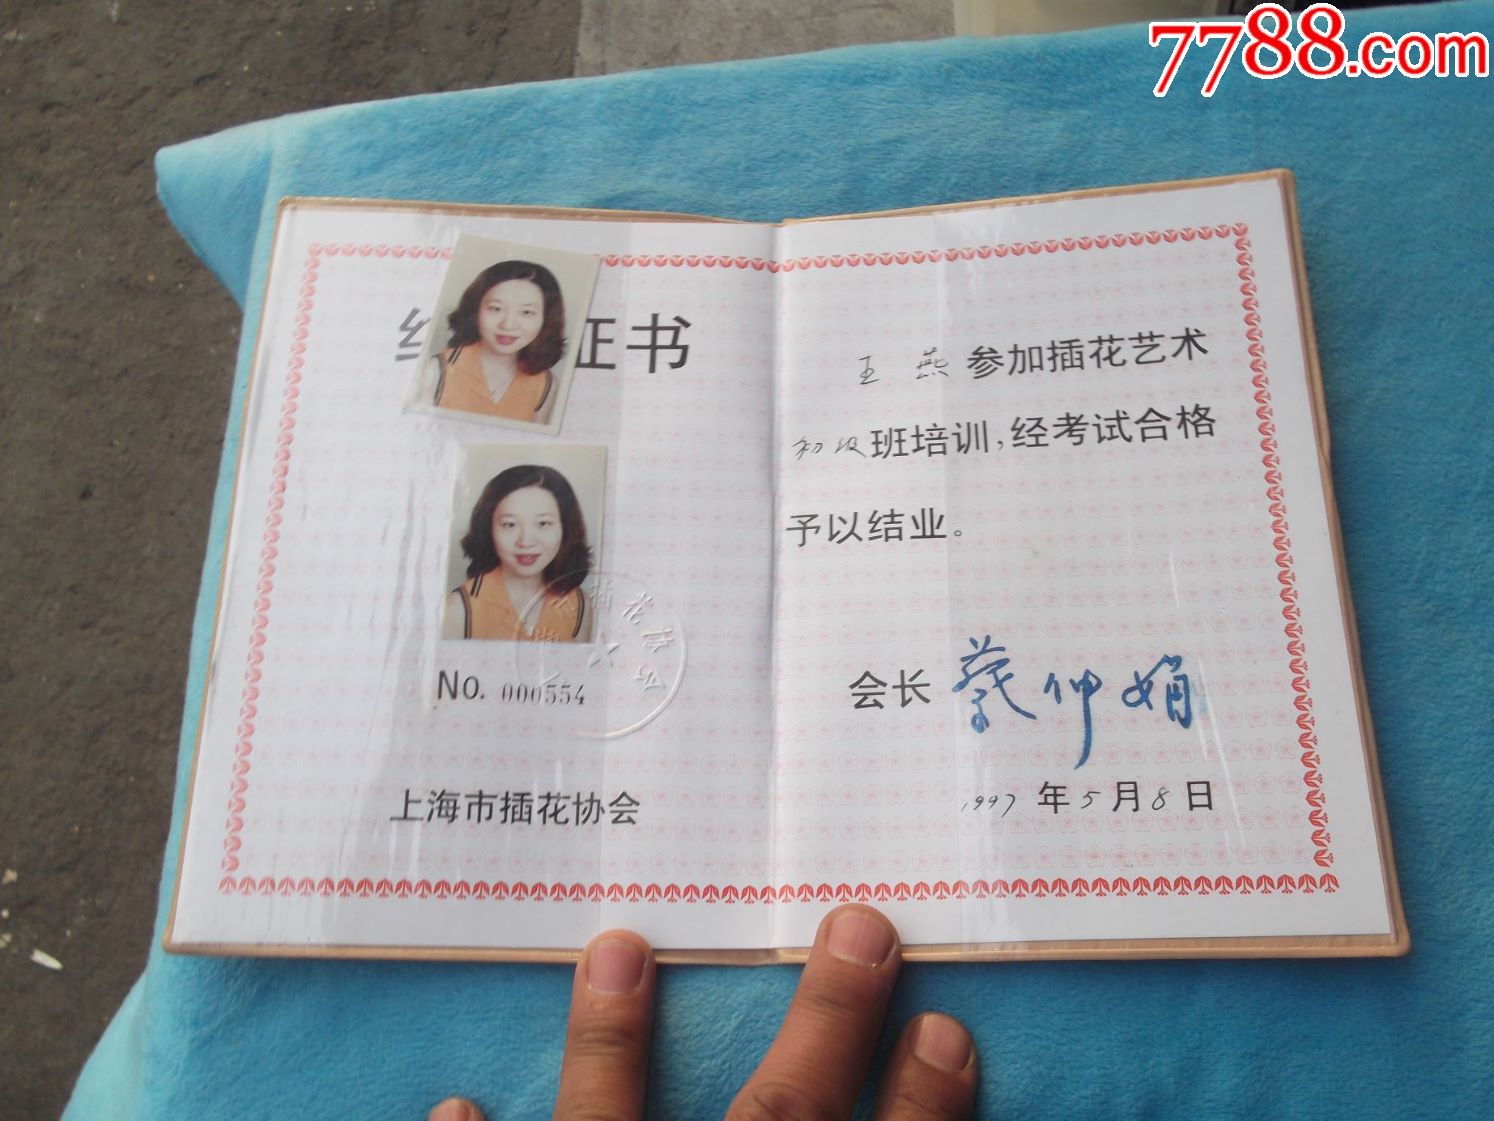 7788.com
结 证书
No. 000554
上海市插花协会
王燕参加插花艺术
初级班培训,经考试合格
予以结业。
会长 蔡仲娟
1997年5月8日